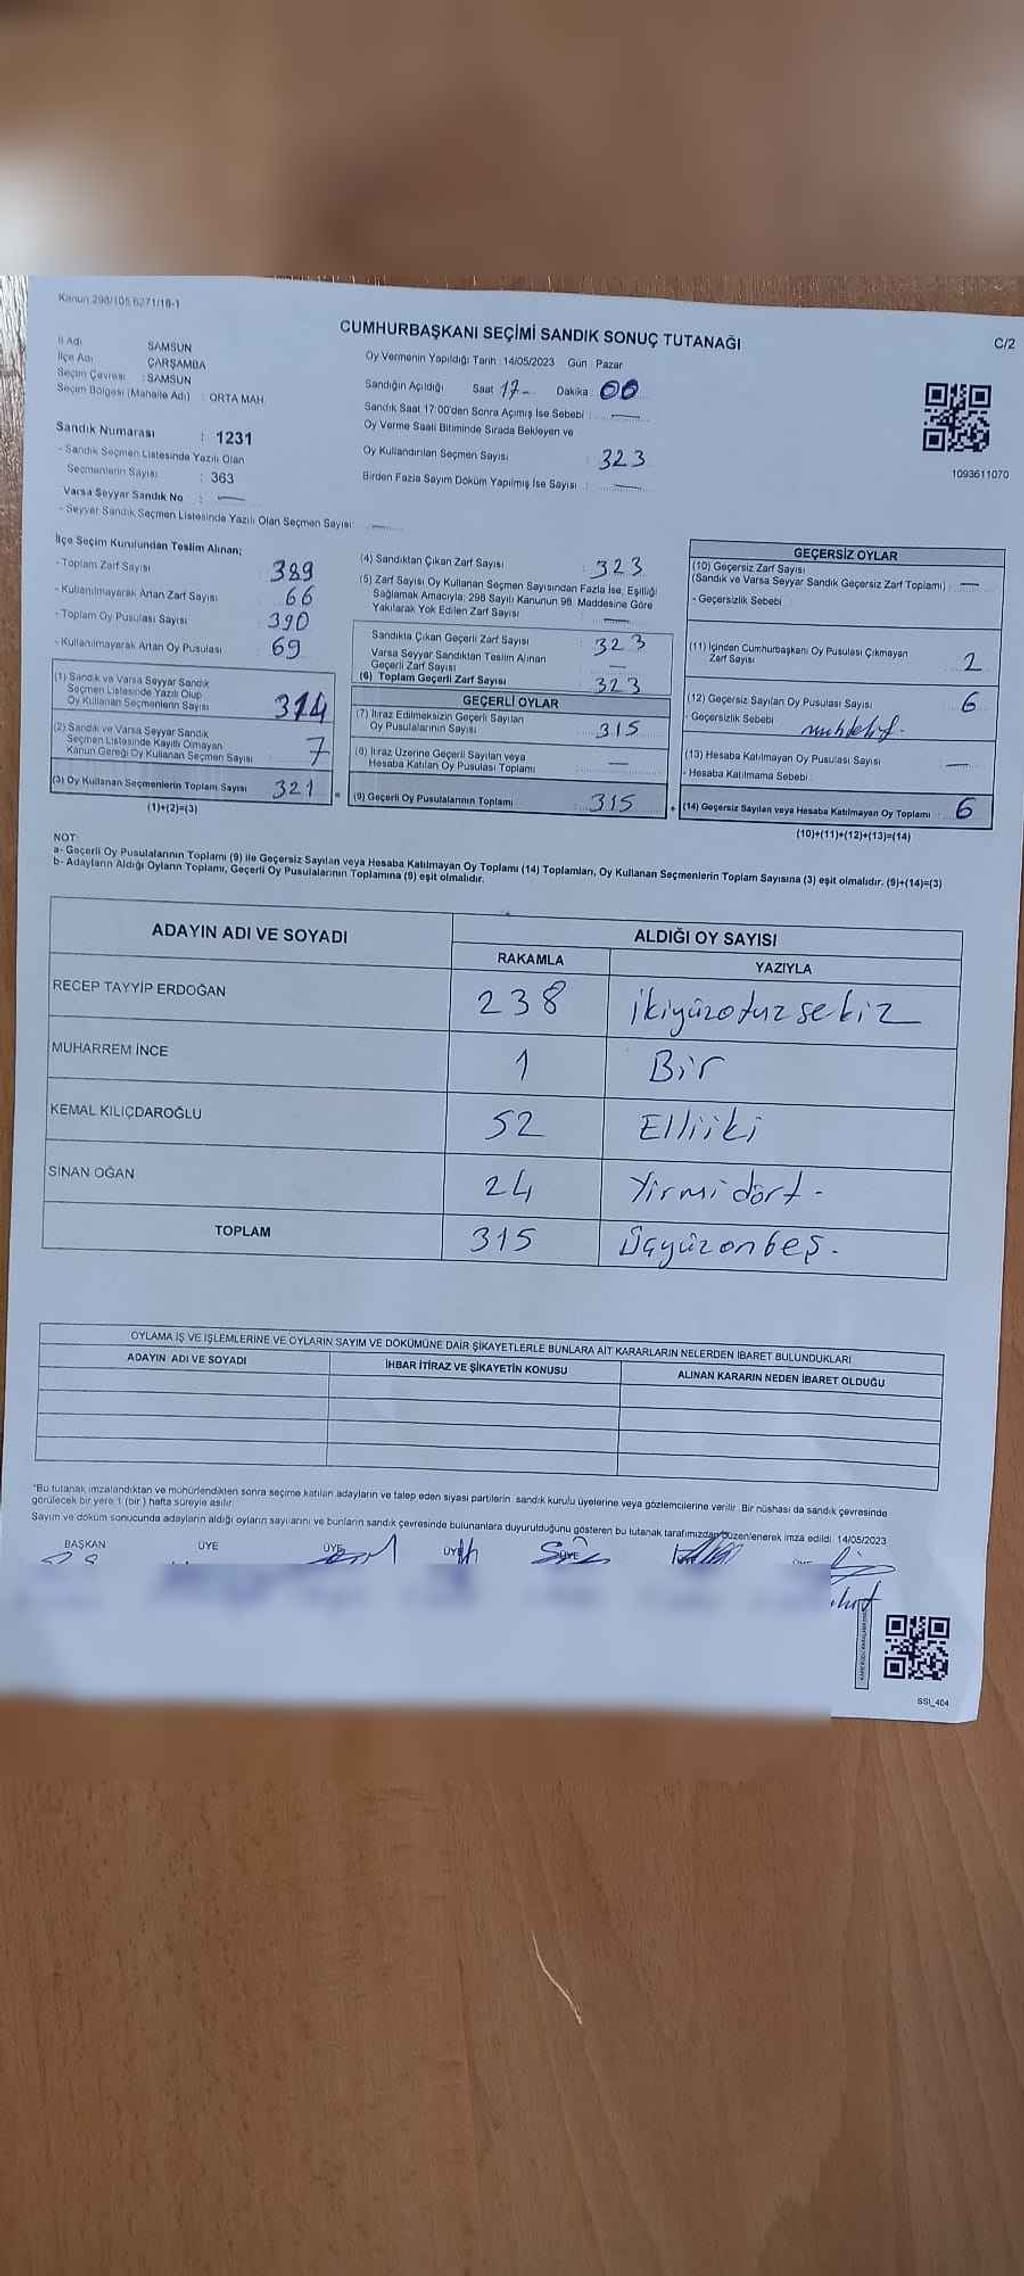 Kanun 298/105 6271/18-1
CUMHURBAŞKANI SEÇİMİ SANDIK SONUÇ TUTANAĞI
C/2
İl Adı SAMSUN
İlçe Adı ÇARŞAMBA
Seçim Çevresi : SAMSUN
Seçim Bölgesi (Mahalle Adı) : ORTA MAH
Sandık Numarası : 1231
- Sandık Seçmen Listesinde Yazılı Olan
Seçmenlerin Sayısı : 363
Varsa Seyyar Sandık No :
- Seyyar Sandık Seçmen Listesinde Yazılı Olan Seçmen Sayısı:
Oy Vermenin Yapıldığı Tarih : 14/05/2023 Gün Pazar
Sandığın Açıldığı Saat 17- Dakika : 00
Sandık Saat 17:00'den Sonra Açımış İse Sebebi :
Oy Verme Saati Bitiminde Sırada Bekleyen ve
Oy Kullandırılan Seçmen Sayısı 323
Birden Fazla Sayım Döküm Yapılmış İse Sayısı :
1093611070
İlçe Seçim Kurulundan Teslim Alınan;
- Toplam Zarf Sayısı 389
- Kullanılmayarak Artan Zarf Sayısı 66
- Toplam Oy Pusulası Sayısı 390
- Kullanılmayarak Artan Oy Pusulası 69
(1) Sandık ve Varsa Seyyar Sandık
Seçmen Listesinde Yazılı Olup
Oy Kullanan Seçmenlerin Sayısı 314
(2) Sandık ve Varsa Seyyar Sandık
Seçmen Listesinde Kayıtlı Olmayan
Kanun Gereği Oy Kullanan Seçmen Sayısı 7
(3) Oy Kullanan Seçmenlerin Toplam Sayısı 321
(1)+(2)=(3)
(4) Sandıktan Çıkan Zarf Sayısı : 323
(5) Zarf Sayısı Oy Kullanan Seçmen Sayısından Fazla İse, Eşitliği
Sağlamak Amacıyla; 298 Sayılı Kanunun 98. Maddesine Göre
Yakılarak Yok Edilen Zarf Sayısı
Sandıkta Çıkan Geçerli Zarf Sayısı : 323
Varsa Seyyar Sandıktan Teslim Alınan
Geçerli Zarf Sayısı
(6) Toplam Geçerli Zarf Sayısı 323
GEÇERLİ OYLAR
(7) İtiraz Edilmeksizin Geçerli Sayılan
Oy Pusulalarının Sayısı 315
(8) İtiraz Üzerine Geçerli Sayılan veya
Hesaba Katılan Oy Pusulası Toplamı
= (9) Geçerli Oy Pusulalarının Toplamı 315
GEÇERSİZ OYLAR
(10) Geçersiz Zarf Sayısı
(Sandık ve Varsa Seyyar Sandık Geçersiz Zarf Toplamı) :
- Geçersizlik Sebebi
(11) İçinden Cumhurbaşkanı Oy Pusulası Çıkmayan
Zarf Sayısı 2
(12) Geçersiz Sayılan Oy Pusulası Sayısı 6
- Geçersizlik Sebebi muhtelif.
(13) Hesaba Katılmayan Oy Pusulası Sayısı
- Hesaba Katılmama Sebebi
+ (14) Geçersiz Sayılan veya Hesaba Katılmayan Oy Toplamı : 6
(10)+(11)+(12)+(13)=(14)
NOT:
a- Geçerli Oy Pusulalarının Toplamı (9) ile Geçersiz Sayılan veya Hesaba Katılmayan Oy Toplamı (14) Toplamları, Oy Kullanan Seçmenlerin Toplam Sayısına (3) eşit olmalıdır. (9)+(14)=(3)
b- Adayların Aldığı Oyların Toplamı, Geçerli Oy Pusulalarının Toplamına (9) eşit olmalıdır.
ADAYIN ADI VE SOYADI
ALDIĞI OY SAYISI
RAKAMLA YAZIYLA
RECEP TAYYİP ERDOĞAN 238 İkiyüzotuzsekiz
MUHARREM İNCE 1 Bir
KEMAL KILIÇDAROĞLU 52 Elliiki
SİNAN OĞAN 24 Yirmidört-
TOPLAM 315 Üçyüzonbeş.
OYLAMA İŞ VE İŞLEMLERİNE VE OYLARIN SAYIM VE DÖKÜMÜNE DAİR ŞİKAYETLERLE BUNLARA AİT KARARLARIN NELERDEN İBARET BULUNDUKLARI
ADAYIN ADI VE SOYADI İHBAR İTİRAZ VE ŞİKAYETİN KONUSU ALINAN KARARIN NEDEN İBARET OLDUĞU
"Bu tutanak imzalandıktan ve mühürlendikten sonra seçime katılan adayların ve talep eden siyasi partilerin sandık kurulu üyelerine veya gözlemcilerine verilir. Bir nüshası da sandık çevresinde
görülecek bir yere 1 (bir) hafta süreyle asılır.
Sayım ve döküm sonucunda adayların aldığı oyların sayılarını ve bunların sandık çevresinde bulunanlara duyurulduğunu gösteren bu tutanak tarafımızdan düzenlenerek imza edildi. 14/05/2023
BAŞKAN ÜYE ÜYE ÜYE ÜYE
SSI_404